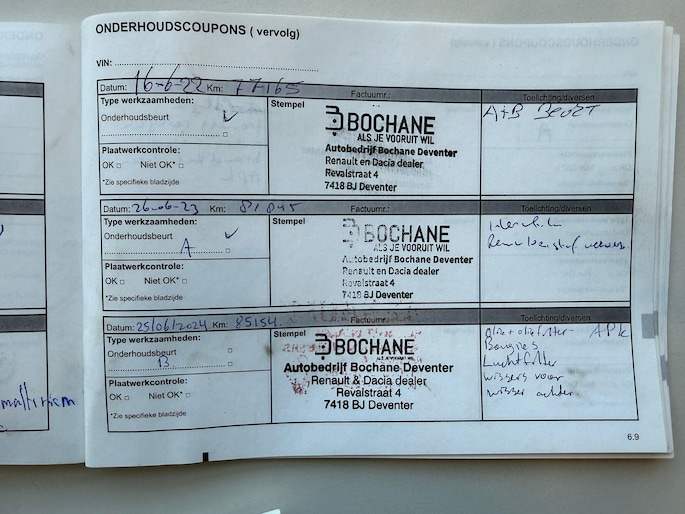 ONDERHOUDSCOUPONS ( vervolg)
VIN:
Datum: 16-6-22 Km: 77165 Factuurnr.: Toelichting/diversen
Type werkzaamheden:
Onderhoudsbeurt
Plaatwerkcontrole:
OK Niet OK*
*Zie specifieke bladzijde
Stempel
BOCHANE
ALS JE VOORUIT WIL
Autobedrijf Bochane Deventer
Renault en Dacia dealer
Revalstraat 4
7418 BJ Deventer
A+B BEURT
Datum: 26-06-23 Km: 81045 Factuurnr.: Toelichting/diversen
Type werkzaamheden:
Onderhoudsbeurt
A
Plaatwerkcontrole:
OK Niet OK*
*Zie specifieke bladzijde
Stempel
BOCHANE
ALS JE VOORUIT WIL
Autobedrijf Bochane Deventer
Renault en Dacia dealer
Revalstraat 4
7418 BJ Deventer
Datum: 25/06/2024 Km: 85154 Factuurnr.: Toelichting/diversen
Type werkzaamheden:
Onderhoudsbeurt
B
Plaatwerkcontrole:
OK Niet OK*
*Zie specifieke bladzijde
Stempel
BOCHANE
ALS JE VOORUIT WIL
Autobedrijf Bochane Deventer
Renault & Dacia dealer
Revalstraat 4
7418 BJ Deventer
olie+oliefilter APK
Bougies
Luchtfilter
wissers voor
wisser achter
6.9